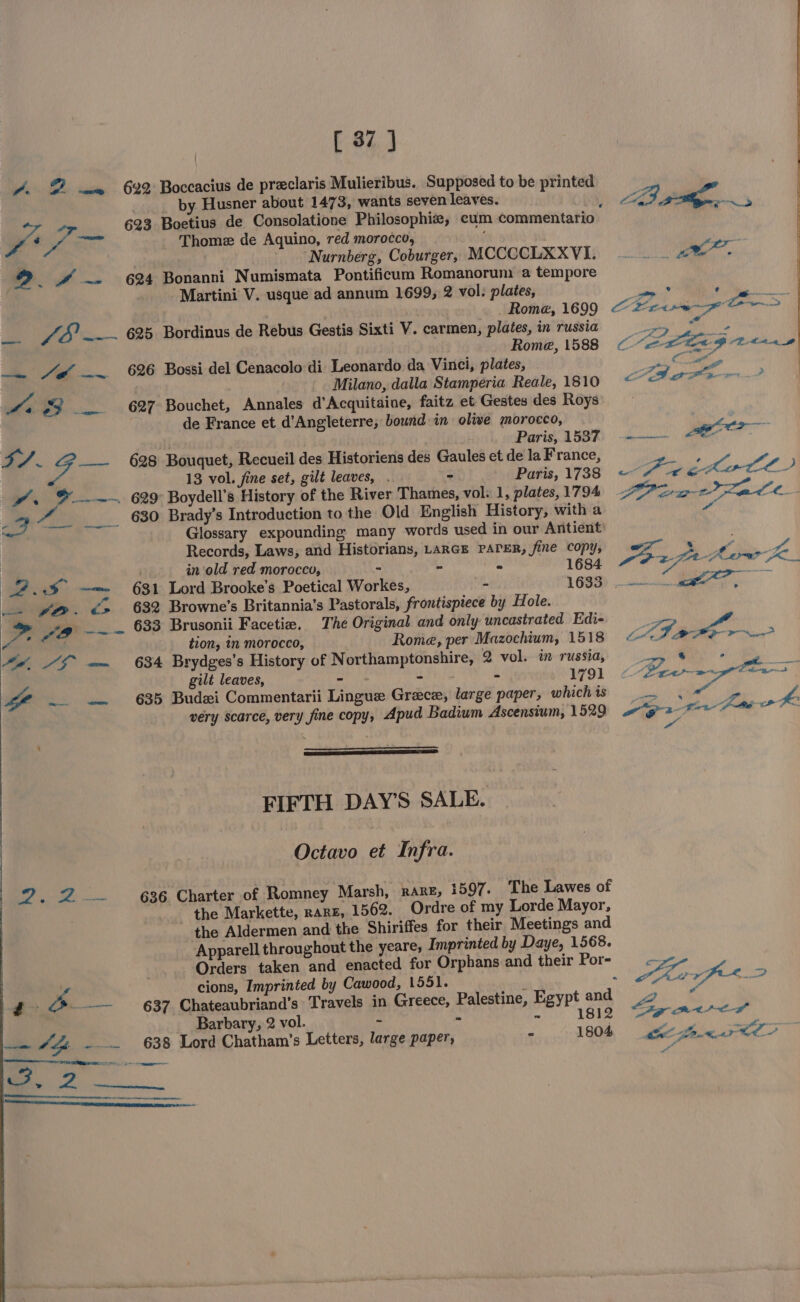 [ 37 ]
622 Boccacius de præclaris Mulieribus. Supposed to be printed
by Husner about 1473, wants seven leaves.
623 Boetius de Consolatione Philosophiæ, cum commentario
Thomæ de Aquino, red morocco,
Nurnberg, Coburger, MCCCCLXXVI.
624 Bonanni Numismata Pontificum Romanorum a tempore
Martini V. usque ad annum 1699, 2 vol. plates,
Romæ, 1699
625 Bordinus de Rebus Gestis Sixti V. carmen, plates, in russia
Romæ, 1588
626 Bossi del Cenacolo di Leonardo da Vinci, plates,
Milano, dalla Stamperia Reale, 1810
627 Bouchet, Annales d'Acquitaine, faitz et Gestes des Roys
de France et d'Angleterre, bound in olive morocco,
Paris, 1537
628 Bouquet, Recueil des Historiens des Gaules et de la France,
13 vol. fine set, gilt leaves, - Paris, 1738
629 Boydell's History of the River Thames, vol. 1, plates, 1794
630 Brady's Introduction to the Old English History, with a
Glossary expounding many words used in our Antient
Records, Laws, and Historians, LARGE PAPER, fine copy,
in old red morocco, - - - 1684
631 Lord Brooke's Poetical Workes, - 1633
632 Browne's Britannia's Pastorals, frontispiece by Hole.
633 Brusonii Facetiæ. The Original and only uncastrated Edi-
tion, in morocco, Romæ, per Mazochium, 1518
634 Brydges's History of Northamptonshire, 2 vol. in russia,
gilt leaves, - - - 1791
635 Budæi Commentarii Linguæ Græcæ, large paper, which is
very scarce, very fine copy, Apud Badium Ascensium, 1529
FIFTH DAY'S SALE.
Octavo et Infra.
2. 2 — 636 Charter of Romney Marsh, RARE, 1597. The Lawes of
the Markette, RARE, 1562. Ordre of my Lorde Mayor,
the Aldermen and the Shiriffes for their Meetings and
Apparell throughout the yeare, Imprinted by Daye, 1568.
Orders taken and enacted for Orphans and their Por-
cions, Imprinted by Cawood, 1551.
637 Chateaubriand's Travels in Greece, Palestine, Egypt and
Barbary, 2 vol. - - - 1812
638 Lord Chatham's Letters, large paper, - 1804